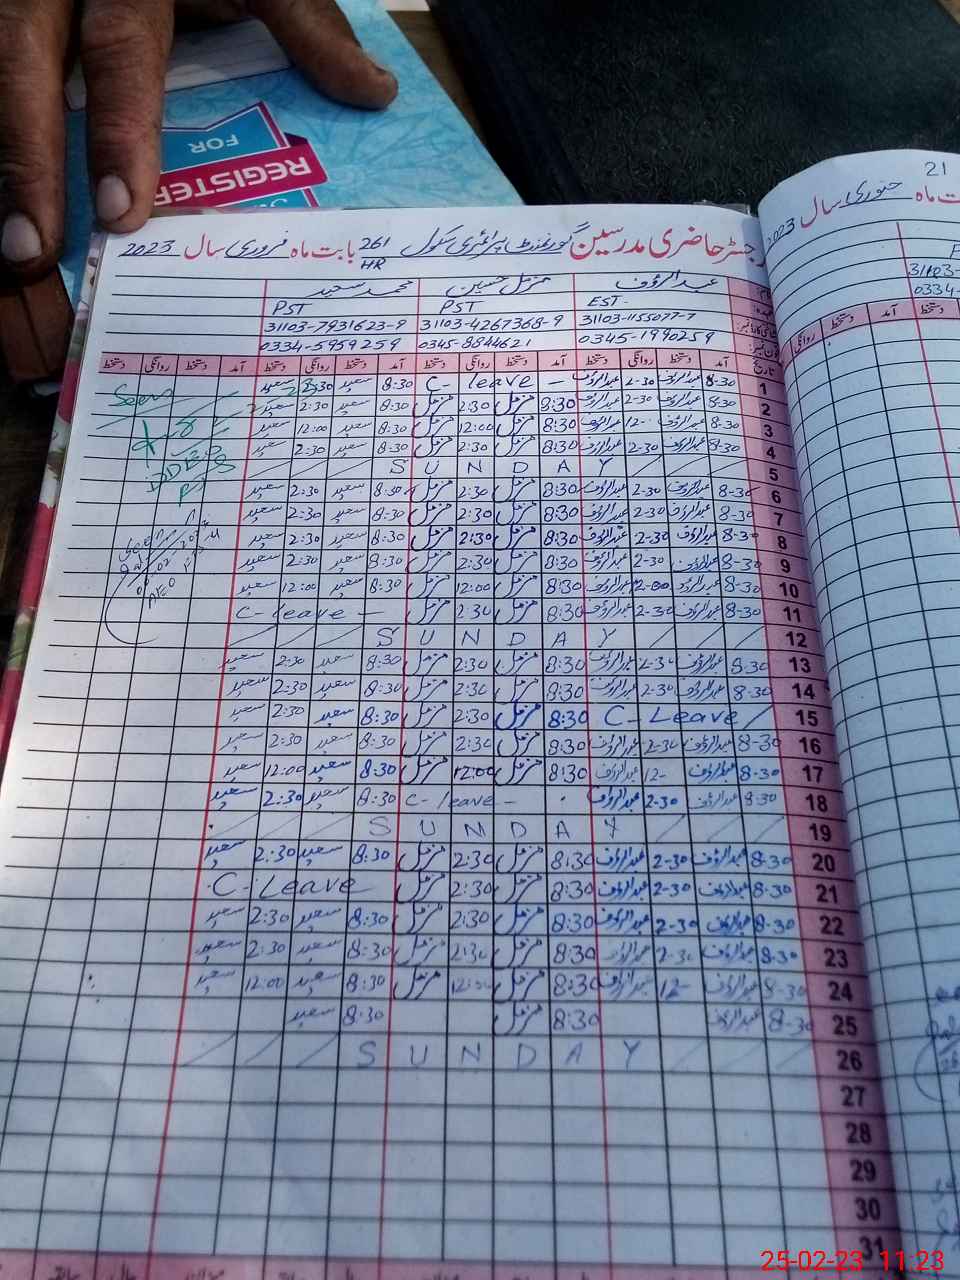 FOR
REGISTER
رجسٹر حاضری مدرسین گورنمنٹ پرائمری سکول 261 HR بابت ماہ فروری سال 2023
عبدالرؤف مزمل حسین محمد سعید
EST- PST PST
31103-1155077-7 31103-4267368-9 31103-7931623-9
0345-1990259 0345-8844621 0334-5959259
تاریخ آمد دستخط روانگی دستخط آمد دستخط روانگی دستخط آمد دستخط روانگی دستخط آمد دستخط روانگی دستخط
1 8-30 عبدالرؤف 2-30 عبدالرؤف C- leave - 8:30 سعید 2:30 سعید
2 8-30 عبدالرؤف 2-30 عبدالرؤف 8:30 مزمل 2:30 مزمل 8:30 سعید 2:30 سعید
3 8-30 عبدالرؤف 12- عبدالرؤف 8:30 مزمل 12:00 مزمل 8:30 سعید 12:00 سعید
4 8-30 عبدالرؤف 2-30 عبدالرؤف 8:30 مزمل 2:30 مزمل 8:30 سعید 2:30 سعید
5 SUNDAY
6 8-30 عبدالرؤف 2-30 عبدالرؤف 8:30 مزمل 2:30 مزمل 8:30 سعید 2:30 سعید
7 8-30 عبدالرؤف 2-30 عبدالرؤف 8:30 مزمل 2:30 مزمل 8:30 سعید 2:30 سعید
8 8-30 عبدالرؤف 2-30 عبدالرؤف 8:30 مزمل 2:30 مزمل 8:30 سعید 2:30 سعید
9 8-30 عبدالرؤف 2-30 عبدالرؤف 8:30 مزمل 2:30 مزمل 8:30 سعید 2:30 سعید
10 8-30 عبدالرؤف 12-00 عبدالرؤف 8:30 مزمل 12:00 مزمل 8:30 سعید 12:00 سعید
11 8-30 عبدالرؤف 2-30 عبدالرؤف 8:30 مزمل 2:30 مزمل C- leave -
12 SUNDAY
13 8-30 عبدالرؤف 2-30 عبدالرؤف 8:30 مزمل 2:30 مزمل 8:30 سعید 2:30 سعید
14 8-30 عبدالرؤف 2-30 عبدالرؤف 8:30 مزمل 2:30 مزمل 8:30 سعید 2:30 سعید
15 C- Leave 8:30 مزمل 2:30 مزمل 8:30 سعید 2:30 سعید
16 8-30 عبدالرؤف 2-30 عبدالرؤف 8:30 مزمل 2:30 مزمل 8:30 سعید 2:30 سعید
17 8-30 عبدالرؤف 12- عبدالرؤف 8:30 مزمل 12:00 مزمل 8:30 سعید 12:00 سعید
18 8-30 عبدالرؤف 2-30 عبدالرؤف C- leave - 8:30 سعید 2:30 سعید
19 SUNDAY
20 8-30 عبدالرؤف 2-30 عبدالرؤف 8:30 مزمل 2:30 مزمل 8:30 سعید 2:30 سعید
21 8-30 عبدالرؤف 2-30 عبدالرؤف 8:30 مزمل 2:30 مزمل C- Leave
22 8-30 عبدالرؤف 2-30 عبدالرؤف 8:30 مزمل 2:30 مزمل 8:30 سعید 2:30 سعید
23 8-30 عبدالرؤف 2-30 عبدالرؤف 8:30 مزمل 2:30 مزمل 8:30 سعید 2:30 سعید
24 8-30 عبدالرؤف 12- عبدالرؤف 8:30 مزمل 12:00 مزمل 8:30 سعید 12:00 سعید
25 8-30 عبدالرؤف 8:30 مزمل 8:30 سعید
26 SUNDAY
27
28
29
30
31
Seen
Seen
AEO
21
ماہ جنوری سال 2023
31103-
0334-
دستخط آمد دستخط روانگی
25-02-23 11:23